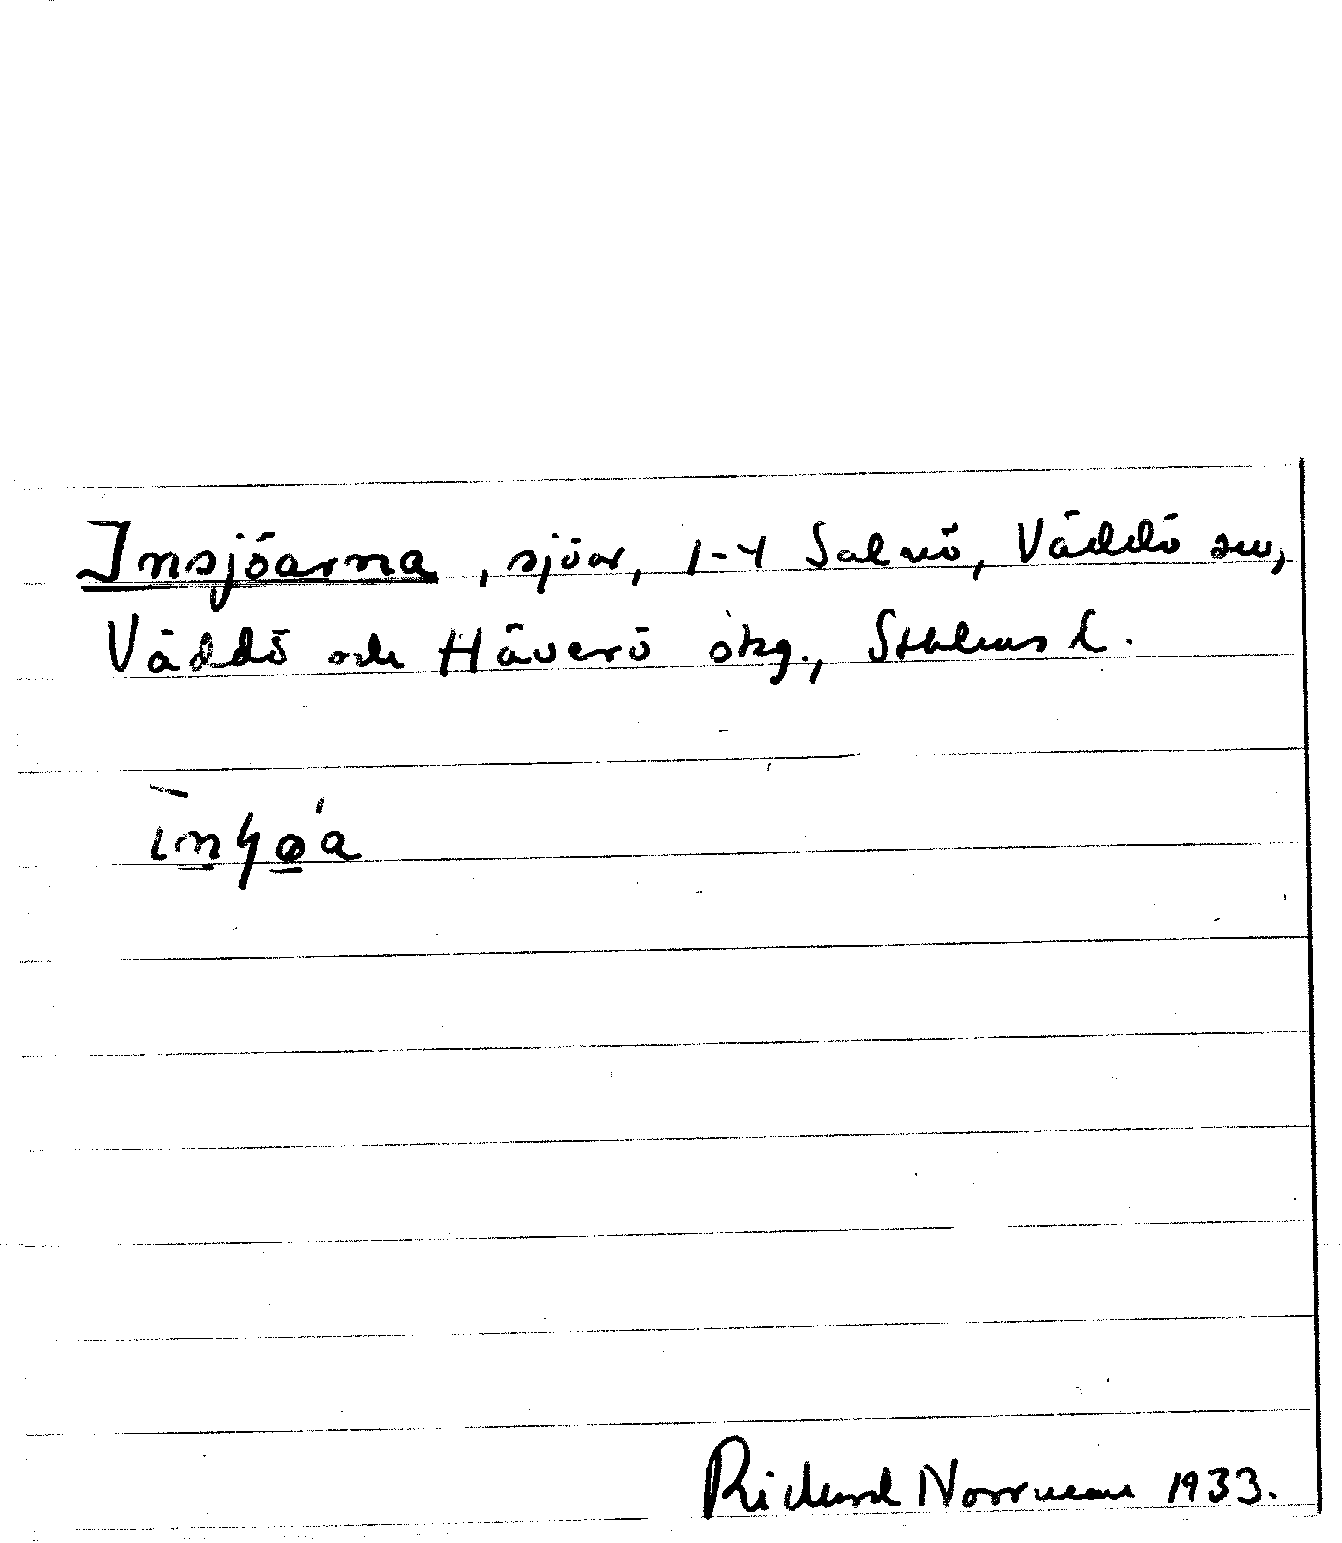 Insjöarna, sjöar, 1-4 Salnö, Väddö sn,
Väddö och Häverö skg., Sthlms l.
Richard Norrman 1933.